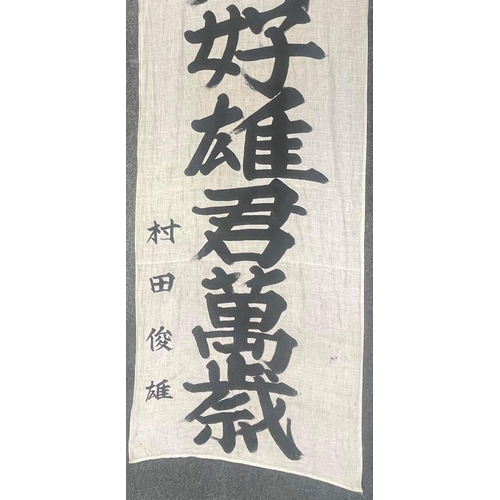 好雄君萬歳
村田俊雄